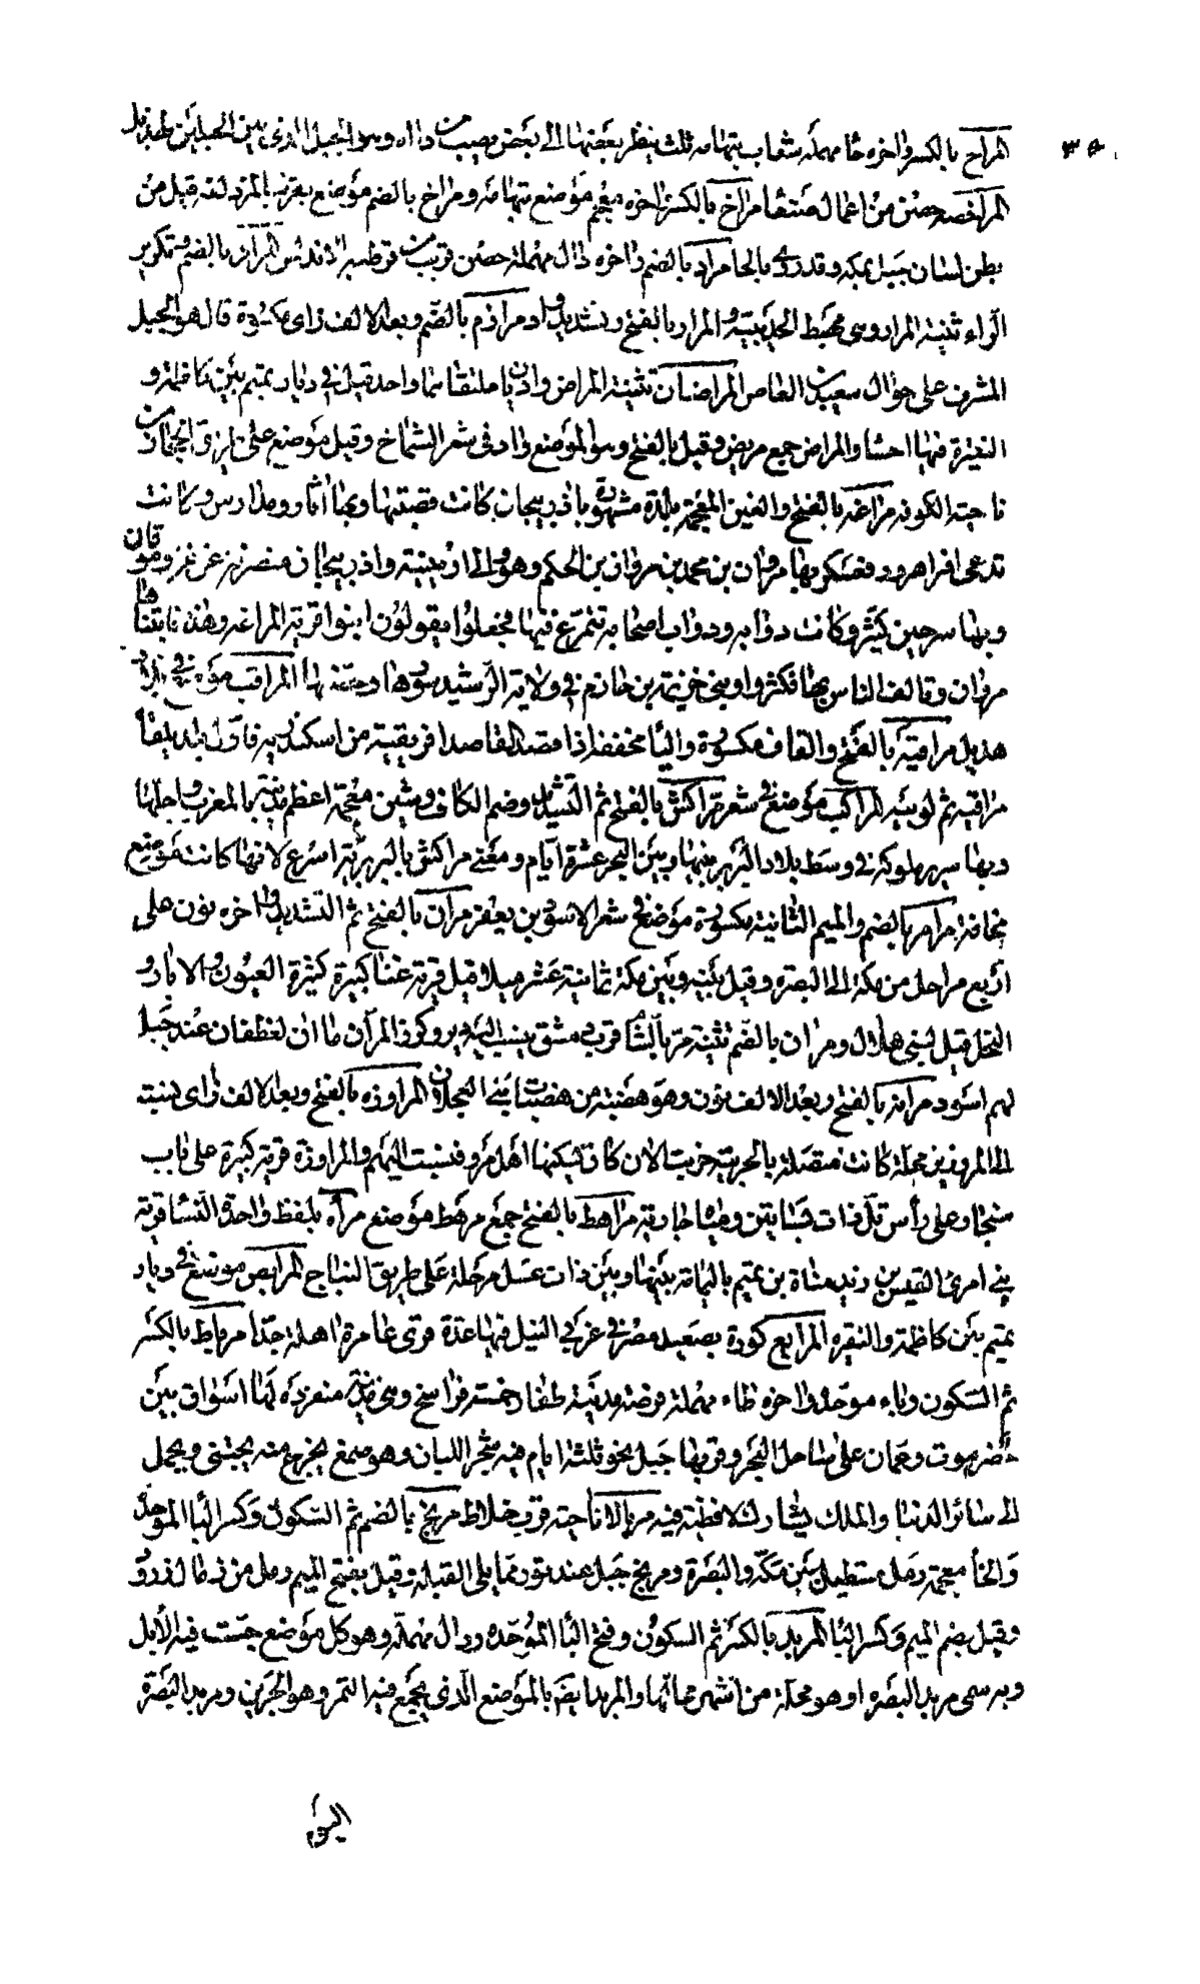 المراح بالكسر واخره حا مهملة شعاب بتهامه ثلث ينظر بعضها الى بعض يصيب من داآه وهو الجبل الذى بين الجبلين لهذيل
المراخصه حصن من اعمال صنعا مراخ بالكسر واخره معجم موضع بتهامه ومراخ بالضم موضع بقرب بالمزدلفه قيل من
بطن لسان جبل بمكه وقد روى بالحا مراد بالضم واخره دال مهملة حصن قريب من قرطبه الاندلس المرار بالضم وتكرير
الراء ثنية المرار وهى مهبط الحديبيه والمرار بالفتح وتشديد واد مرازم بالضم وبعد الالف زاى مكسورة قال هو الجبل
المشرف على حوال سعيد بن العاص المراضان تثنية المراض واديان ملتقاهما واحد قيل فى ديار تميم بين كاظمة و
النقيرة فيها احشا والمراض جمع مريض وقيل بالفتح وهو الموضع واد فى شعر الشماخ وقيل موضع على طريق الحجاز من
ناحيته الكوفه مراغه بالفتح والغين المعجمه بلدة مشهورة باذربيجان كانت قصبتها وبها آثار ومدارس وكانت
تدعى افراهرود فعسكر بها مروان بن محمد بن مروان بن الحكم وهو والى ارمينية واذربيجان منصرفه عن غزو موقان
وبها سرجين كثير وكانت دوابه ودواب اصحابه تتمرغ فيها فجعلوا يقولون ابنوا قرية المراغه وهذه فابتناها
مروان وتآلف الناس بها فكثروا وبنى خزيمة بن خازم فى ولاية الرشيد سورها وحصنها المراقب موضع فى بلاد
هذيل مراقية بالفتح والقاف مكسورة والياء مخففه اذا قصد القاصد افريقية من اسكندريه فاول بلد يلقاه
مراقيه ثم لوبيه المراكب موضع فى شعر مراكش بالفتح ثم التشديد وضم الكاف وشين معجمة اعظم مدينة بالمغرب واجلها
وبها سرير ملوكه فى وسط بلاد البربر بينها وبين البحر عشرة ايام ومعنى مراكش بالبربريه اسرع لانها كانت موضع
مخافة مرامر بالضم والميم الثانية مكسورة موضع فى شعر الاسود بن يعفر مران بالفتح ثم التشديد واخره نون على
اربع مراحل من مكة الى البصره وقيل بينه وبين مكة ثمانية عشر ميلا قيل قرية غناء كبيرة كثيرة العيون والابار و
النخل قيل لبنى هلال ومران بالضم تثنية مر بالشام قرب دمشق ينسب اليه دير وذكر فى المرآن ماآن لغطفان عند جبل
لهم اسود مرانه بالفتح وبعد الالف نون وهو هضبة من هضبات بنى العجلان المراوزه بالفتح وبعد الالف زاى نسبة
الى المروزيين محلة كانت متصلة بالحربية خربت الان كان يسكنها اهل مرو فنسبت اليهم والمراوزة قرية كبيرة على باب
سنجار وعلى رأس تل ذات بساتين ومياه جارية مراهط بالفتح جمع مرهط موضع مرأة بلفظ واحدة النساء قرية
بنى امرئ القيس بن زيد مناة بن تميم باليمامة بينها وبين ذات غسل مرحلة على طريق النباج المرابض موضع فى ديار
تميم بين كاظمة والنقيره المرابع كورة بصعيد مصر فى غربى النيل فيها عدة قرى عامرة اهلة جدا مرباط بالكسر
ثم السكون وباء موحدة واخره طاء مهملة فرضة مدينة ظفار خمسة فراسخ وهى مدينة منفردة لها اسواق بين
حضرموت وعمان على ساحل البحر وقربها جبل نحو ثلثة ايام فيه شجر اللبان وهو صمغ يخرج منه يجتنى ويحمل
الى سائر الدنيا والملك يشارك لاقطيه فيه مربالا ناحيته قرب خلاط مربخ بالضم ثم السكون وكسر البا الموحدة
والخا معجمة رمل مستطيل بين مكة والبصرة ومربخ جبل عند ثور مما يلى القبلة وقيل بفتح الميم رمل من رمال زرود
وقيل بضم الميم وكسر البا المربد بالكسر ثم السكون وفتح البا الموحده ودال مهملة وهو كل موضع حبست فيه الابل
وبه سمى مربد البصره وهو محلة من اشهر محالها والمربد ايضا بالموضع الذى يجمع فيه التمر وهو الجرين ومربد البصرة
اليوم